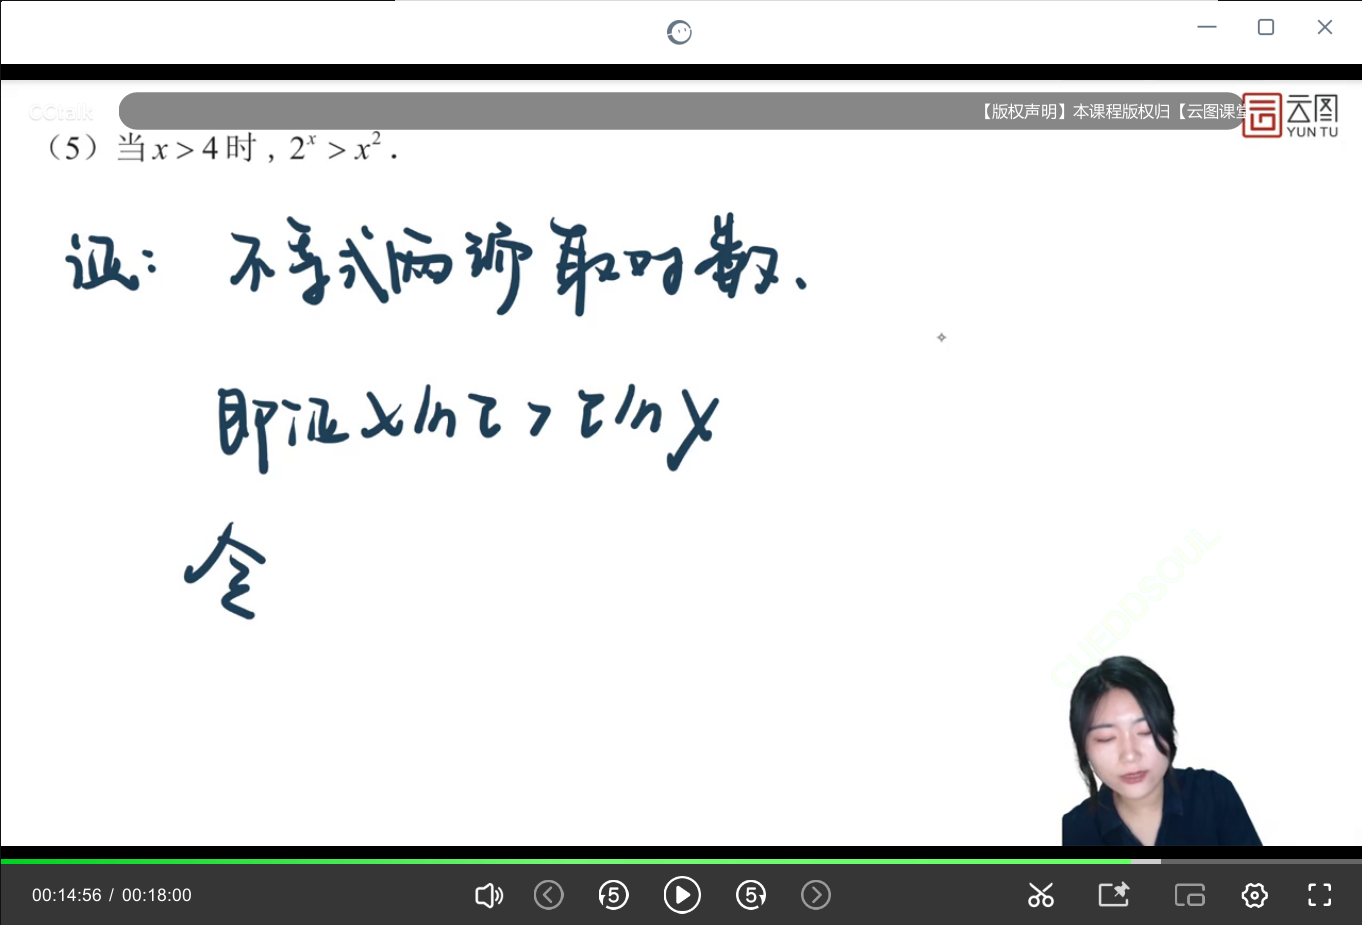 CCtalk
【版权声明】本课程版权归【云图课堂
云图
YUN TU
（5）当 x > 4 时，2ˣ > x².
证: 不等式两边取对数.
即证 x ln 2 > 2 ln x
令
CUEDDSOUL
00:14:56 / 00:18:00
5
5